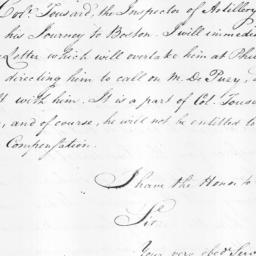 Colo. Tousard, the Inspector of Artillery
his Journey to Boston. I will immedi
Letter which will overtake him at Phil
directing him to call on M. De Puzy,
t with him. It is a part of Col. Tousa
, and of course, he will not be entitled to
Compensation.
I have the Honor to
Sir
Your very obedt. Serv